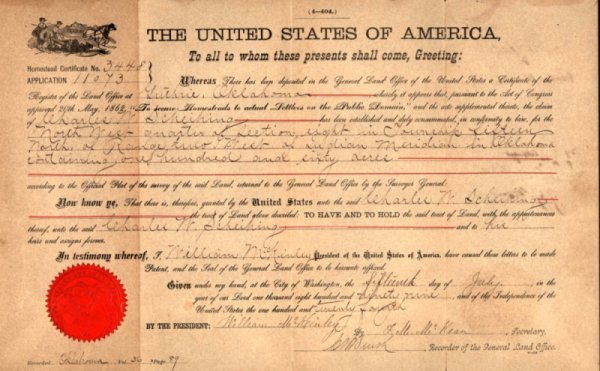 (4—404.)
THE UNITED STATES OF AMERICA,
To all to whom these presents shall come, Greeting:
Homestead Certificate No. 3448
APPLICATION 11073
Whereas There has been deposited in the General Land Office of the United States a Certificate of the
Register of the Land Office at Guthrie, Oklahoma whereby it appears that, pursuant to the Act of Congress
approved 20th May, 1862, "To secure Homesteads to actual Settlers on the Public Domain," and the acts supplemental thereto, the claim
of Charlie W. Scheihing has been established and duly consummated, in conformity to law, for the
North West quarter of Section eight in Township sixteen
North, of Range two West of Indian Meridian in Oklahoma
containing one hundred and sixty acres
according to the Official Plat of the survey of the said Land, returned to the General Land Office by the Surveyor General:
Now know ye, That there is, therefore, granted by the United States unto the said Charlie W. Scheihing
the tract of Land above described: TO HAVE AND TO HOLD the said tract of Land, with the appurtenances
thereof, unto the said Charlie W. Scheihing and to his
heirs and assigns forever.
In testimony whereof, I, William McKinley President of the United States of America, have caused these letters to be made
Patent, and the Seal of the General Land Office to be hereunto affixed.
Given under my hand, at the City of Washington, the fifteenth day of July, in the
year of our Lord one thousand eight hundred and ninety nine, and of the Independence of the
United States the one hundred and twenty fourth
BY THE PRESIDENT: William McKinley
By F. M. McKean, Secretary,
Recorder of the General Land Office.
Recorded, Oklahoma Vol. 36 Page 89